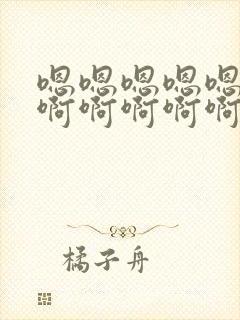 嗯嗯嗯嗯嗯
啊啊啊啊啊
橘子舟